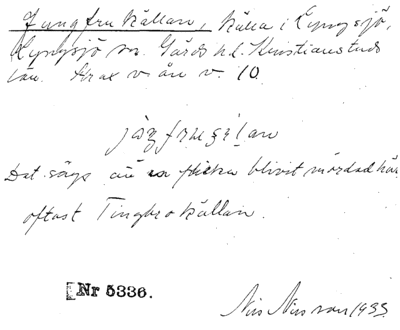 Jungfrukällan, källa i Lyngsjö,
Lyngsjö sn. Gärds hd. Kristianstads
län. Strax v. ån v. 10.
Det sägs att en flicka blivit mördad här
oftast Tingbrokällan.
Nr 5336.
Nils Nilsson 1933